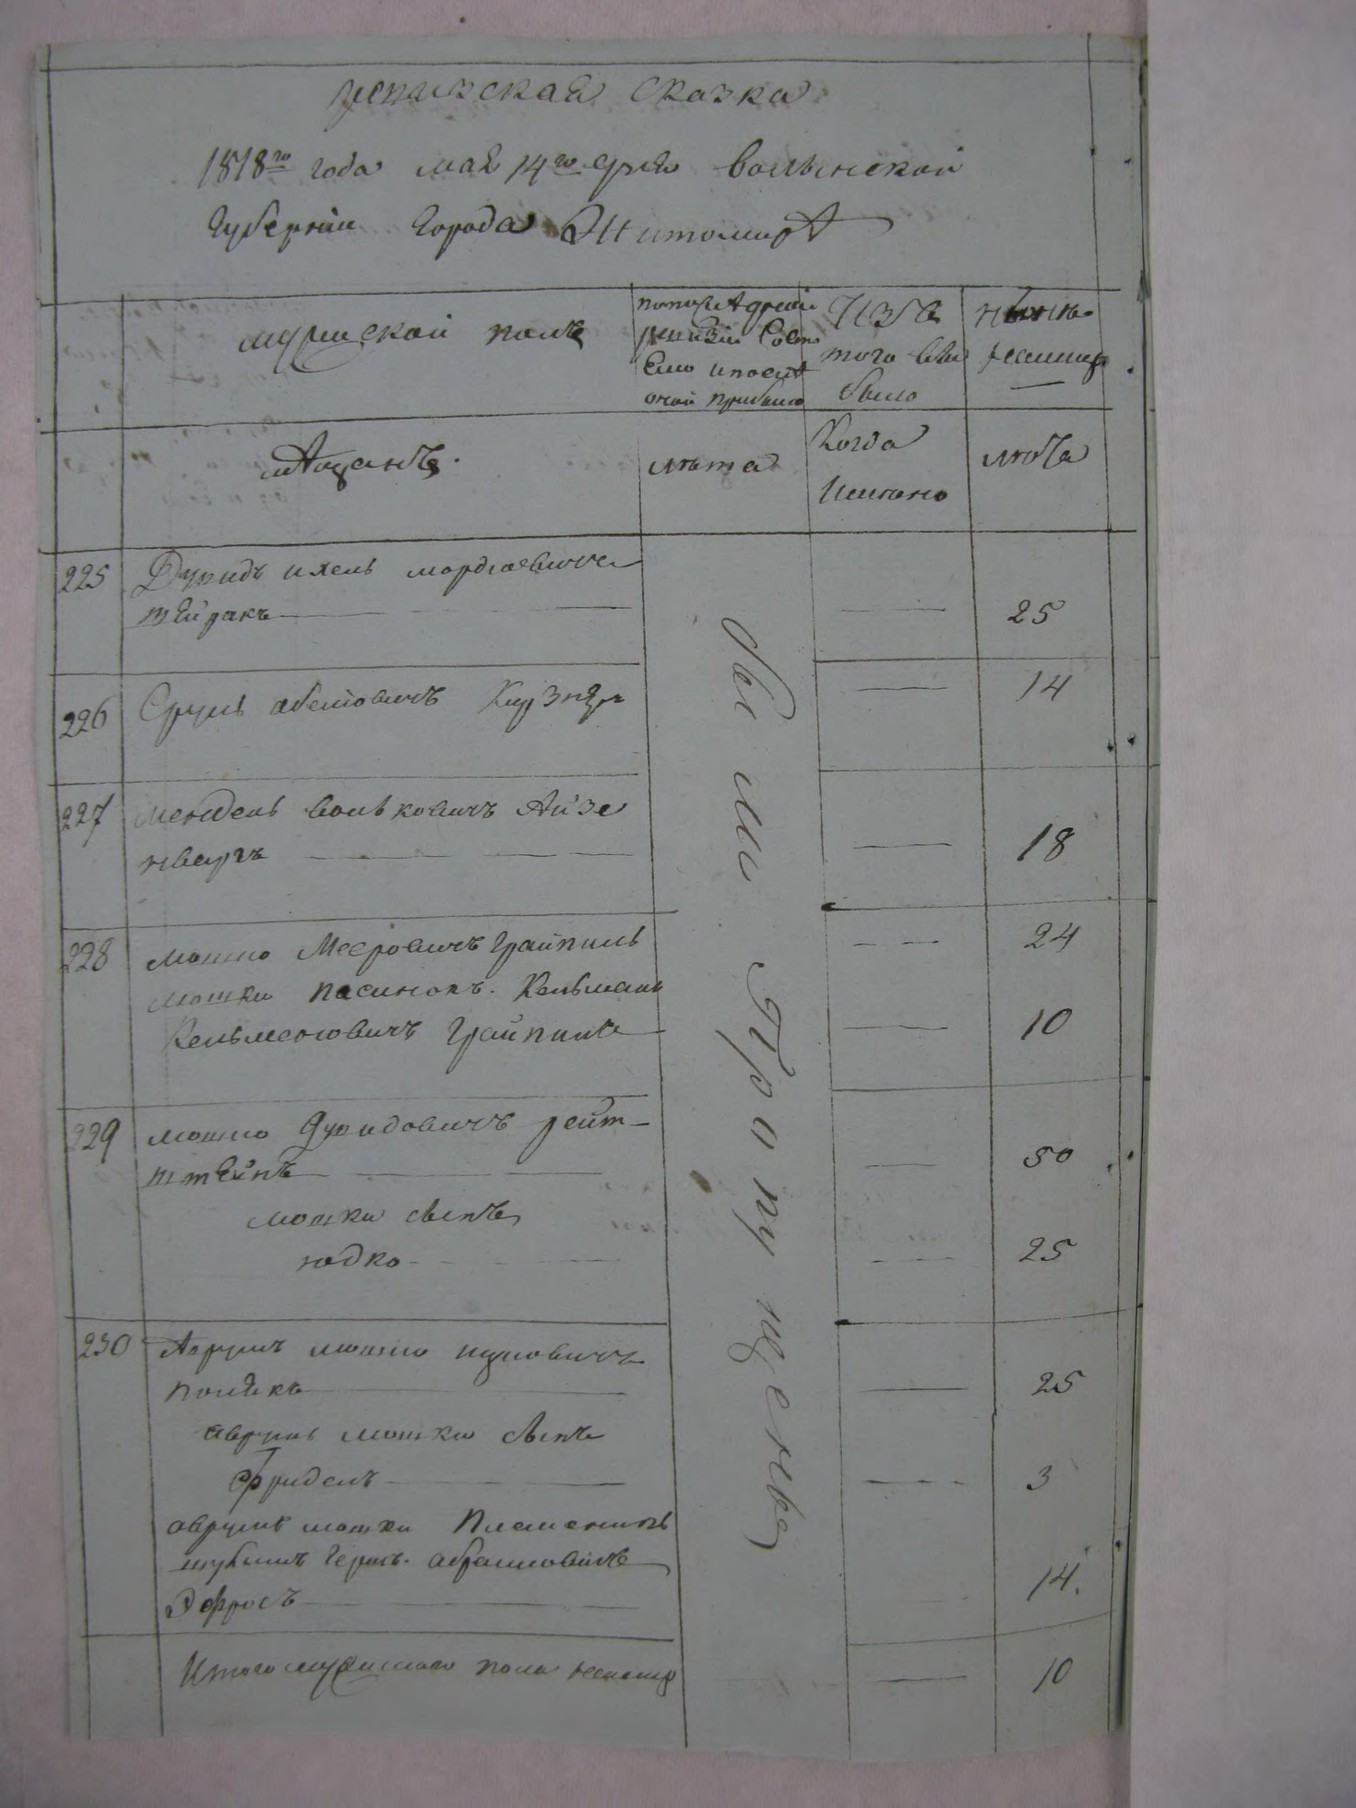 ревизская сказка
1818го года мая 14го дня волынской
Губернии Города Житомира
мужеской полъ
по последней
ревизии состо
яло и после
оной прибыло
Изъ
того числа
было
ныне
налицо
мещанъ.
лета
Когда
именно
лета
225 Дувидъ ихель мордковичъ
штейнакъ
25
226 Сруль абелiовичъ Кузнер
14
227 мендель волькович Айзе
нберг
18
228 мошко Мееровичъ Грайпиль
24
мошки пасинокъ. Кельманъ
Кельмановичъ Грайпиль
10
229 мошко Дувидовичъ рейт-
штейнъ
50
мошки сынъ
юдко
25
230 Аврумъ мошко ицковичъ
полякъ
25
аврумъ мошки сынъ
Фридель
3
аврумъ мошки племенникъ
шулимъ Гершъ. абрамовичъ
Эфросъ
14.
Итого мужеского пола налицо
10
были в пропущены